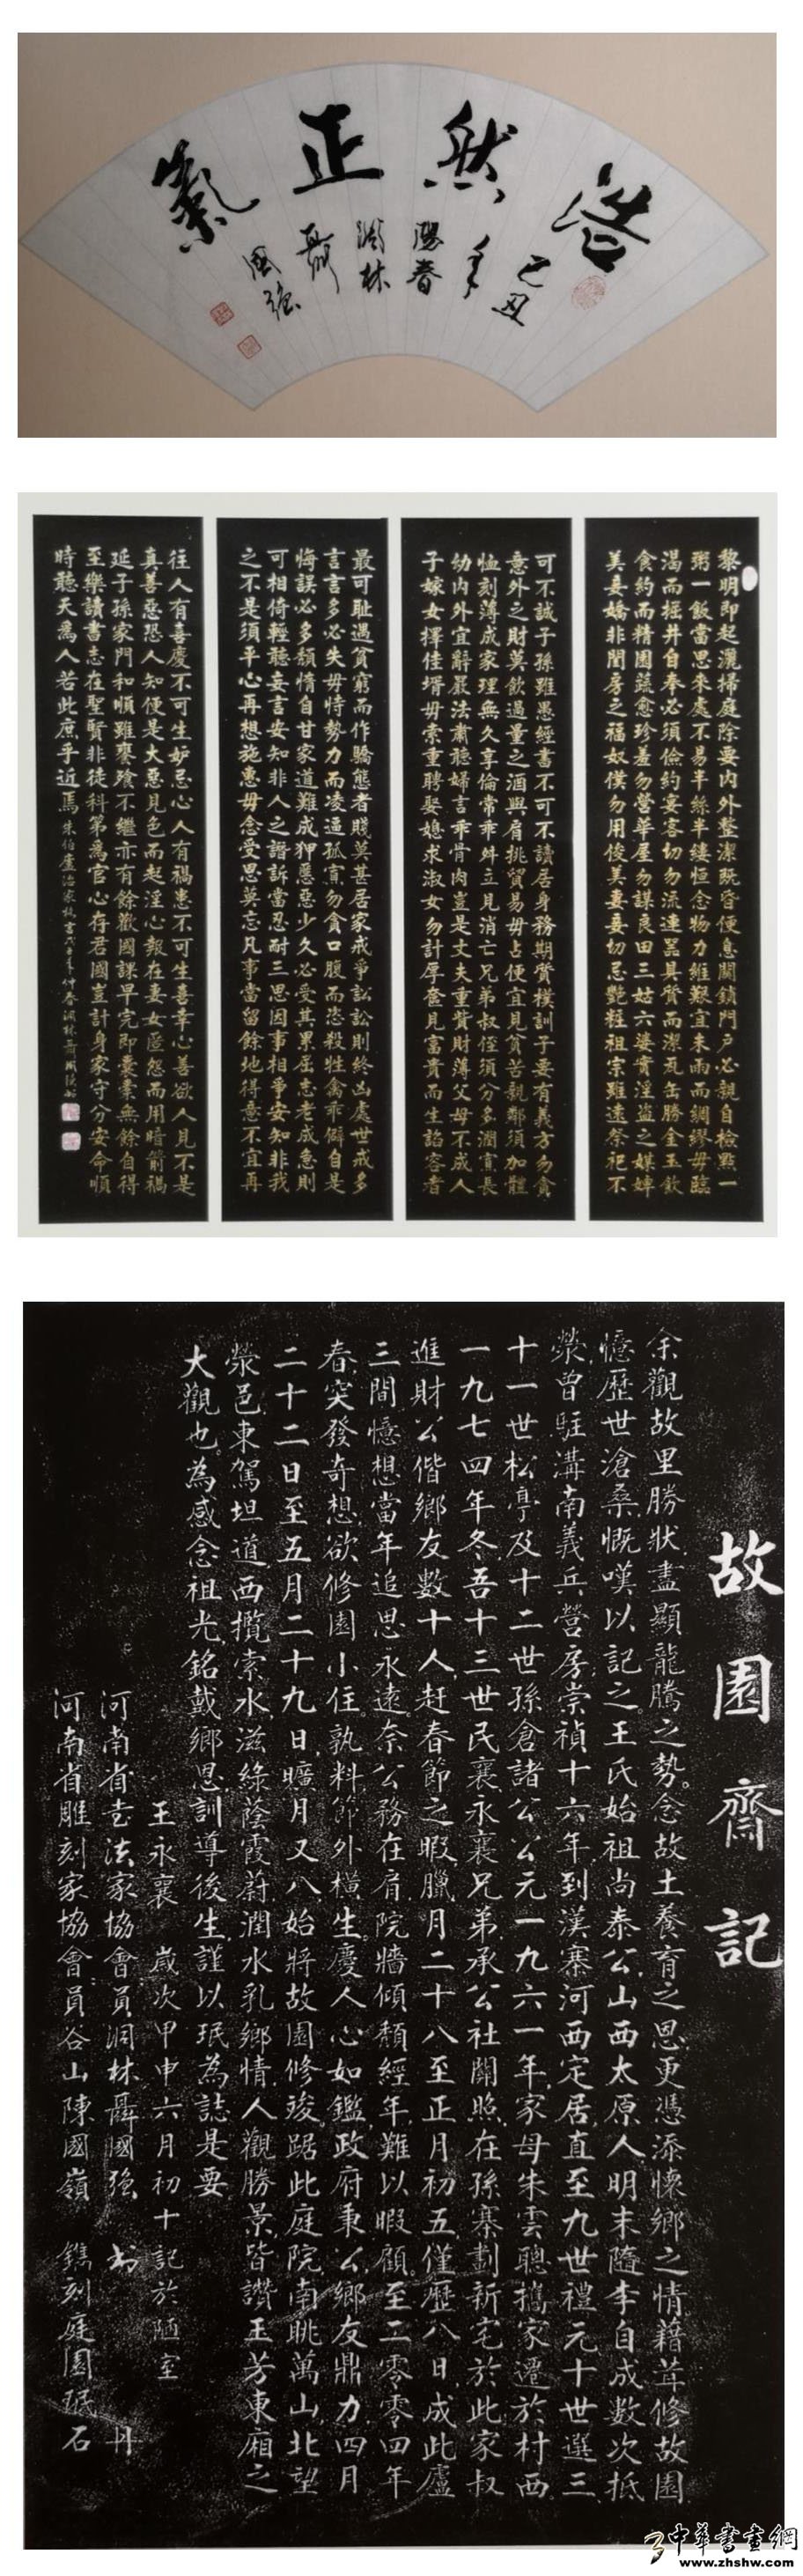 浩然正氣
己丑
陽春
洞林
聶
國強
黎明即起灑掃庭除要内外整潔既昏便息關鎖門戶必親自檢點一
粥一飯當思來處不易半絲半縷恒念物力維艱宜未雨而綢繆毋臨
渴而掘井自奉必須儉約宴客切勿流連器具質而潔瓦缶勝金玉飲
食約而精園蔬愈珍羞勿營華屋勿謀良田三姑六婆實淫盜之媒婢
美妾嬌非閨房之福奴僕勿用俊美妻妾切忌艷粧祖宗雖遠祭祀不
可不誠子孫雖愚經書不可不讀居身務期質樸訓子要有義方勿貪
意外之財莫飲過量之酒與肩挑貿易毋占便宜見貧苦親鄰須加體
恤刻薄成家理無久享倫常乖舛立見消亡兄弟叔侄須分多潤寡長
幼内外宜辭嚴法肅聽婦言乖骨肉豈是丈夫重貲財薄父母不成人
子嫁女擇佳壻毋索重聘娶媳求淑女勿計厚奩見富貴而生諂容者
最可耻遇貧窮而作驕態者賤莫甚居家戒爭訟訟則終凶處世戒多
言言多必失毋恃勢力而凌逼孤寡勿貪口腹而恣殺牲禽乖僻自是
悔誤必多頹惰自甘家道難成狎惡少久必受其累屈志老成急則
可相倚輕聽發言安知非人之譖訴當忍耐三思因事相爭安知非我
之不是須平心再想施惠毋念受恩莫忘凡事當留餘地得意不宜再
往人有喜慶不可生妒忌心人有禍患不可生喜幸心善欲人見不是
真善惡恐人知便是大惡見色而起淫心報在妻女匿怨而用暗箭禍
延子孫家門和順雖饔飧不繼亦有餘歡國課早完即囊橐無餘自得
至樂讀書志在聖賢非徒科第爲官心存君國豈計身家守分安命順
時聽天爲人若此庶乎近焉 朱伯廬治家格言 仲春洞林聶國強
故園齋記
余觀故里勝狀盡顯龍騰之勢念故土養育之恩更憑添懷鄉之情藉葺修故園
憶歷世滄桑慨嘆以記之王氏始祖尚泰公山西太原人明末隨李自成數次抵
滎曾駐溝南義兵營房崇禎十六年到漢寨河西定居直至九世禮元十世選三
十一世松亭及十二世孫倉諸公公元一九六一年家母朱雲聰攜家遷於村西
一九七四年冬吾十三世民襄永襄兄弟承公社關照在孫寨劃新宅於此家叔
進財公偕鄉友數十人趕春節之暇臘月二十八至正月初五僅歷八日成此廬
三間憶想當年追思永遠奈公務在肩院牆傾頹經年難以暇顧至二零零四年
春突發奇想欲修園小住孰料節外橫生慶人心如鑑政府秉公鄉友鼎力四月
二十二日至五月二十九日曠月又八始將故園修竣踞此庭院南眺萬山北望
滎邑東駕坦道西攬索水滋綠蔭霞蔚潤水乳鄉情人觀勝景皆讚王芳東廂之
大觀也為感念祖光銘戴鄉恩訓導後生謹以珉為誌是要
王永襄 歲次甲申六月初十記於陋室
河南省書法家協會員洞林聶國強 書丹
河南省雕刻家協會員谷山陳國嶺 鐫刻庭園珉石
中華書畫網
www.zhshw.com